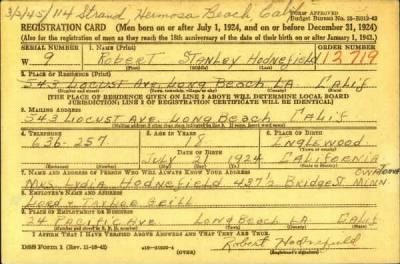 3/5/45/114 Strand, Hermosa Beach, Calif
Form Approved
Budget Bureau No.
REGISTRATION CARD (Men born on or after July 1, 1924, and on or before December 31, 1924)
(Also for the registration of men as they reach the 18th anniversary of the date of their birth on or after January 1, 1943.)
SERIAL NUMBER 1. NAME (Print) ORDER NUMBER
W 9 Robert Stanley Hodnefield 12719
(First) (Middle) (Last)
2. PLACE OF RESIDENCE (Print)
543 Locust Ave. Long Beach LA Calif
(Number and street) (Town, township, village, or city) (County) (State)
[THE PLACE OF RESIDENCE GIVEN ON LINE 2 ABOVE WILL DETERMINE LOCAL BOARD
JURISDICTION; LINE 2 OF REGISTRATION CERTIFICATE WILL BE IDENTICAL]
3. MAILING ADDRESS
543 Locust Ave. Long Beach Calif
[Mailing address if other than place indicated on line 2. If same, insert word same]
4. TELEPHONE 5. AGE IN YEARS 6. PLACE OF BIRTH
636-257 18 Inglewood
DATE OF BIRTH (Town or county)
July 21 1924 California
(Mo.) (Day) (Yr.) (State or country)
7. NAME AND ADDRESS OF PERSON WHO WILL ALWAYS KNOW YOUR ADDRESS
Mrs. Lydia Hodnefield 437½ Bridge St Minn
8. EMPLOYER'S NAME AND ADDRESS
Lord & Taylor Grill
9. PLACE OF EMPLOYMENT OR BUSINESS
24 Pacific Ave Long Beach LA. Calif
(Number and street or R. F. D. number) (Town) (County) (State)
I AFFIRM THAT I HAVE VERIFIED ABOVE ANSWERS AND THAT THEY ARE TRUE.
DSS Form 1 (Rev. 11-16-42) (OVER) Robert Hodnefield
(Registrant's signature)